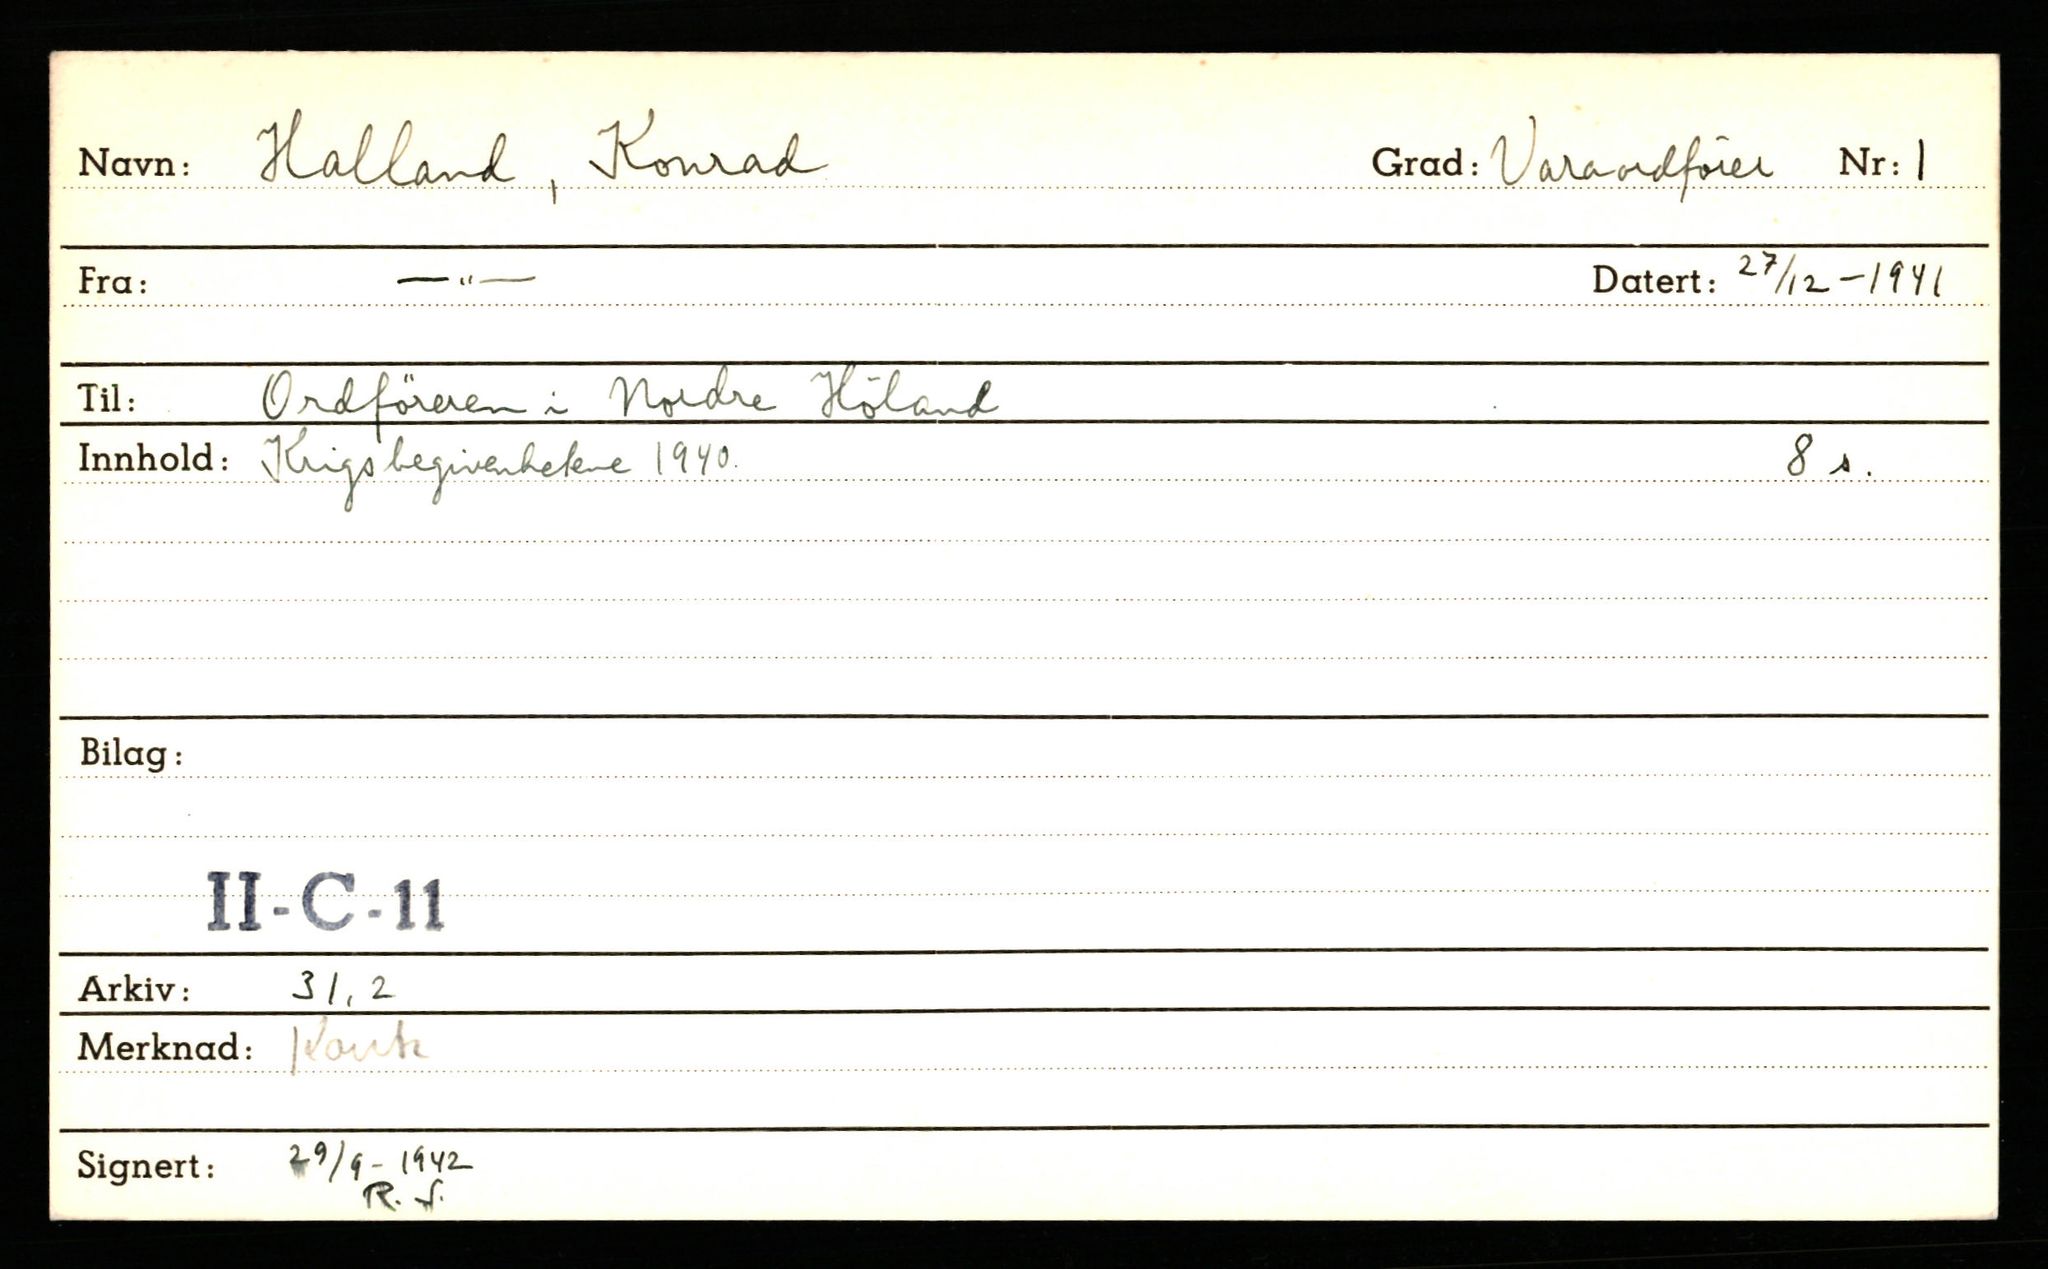 Navn: Halland, Konrad Grad: Varaordfører Nr: 1
Fra: — " — Datert: 27/12 - 1941
Til: Ordföreren i Nordre Höland
Innhold: Krigsbegivenhetene 1940. 8 s.
Bilag:
II-C-11
Arkiv: 31, 2
Merknad:
Signert: 29/9 - 1942
R. S.